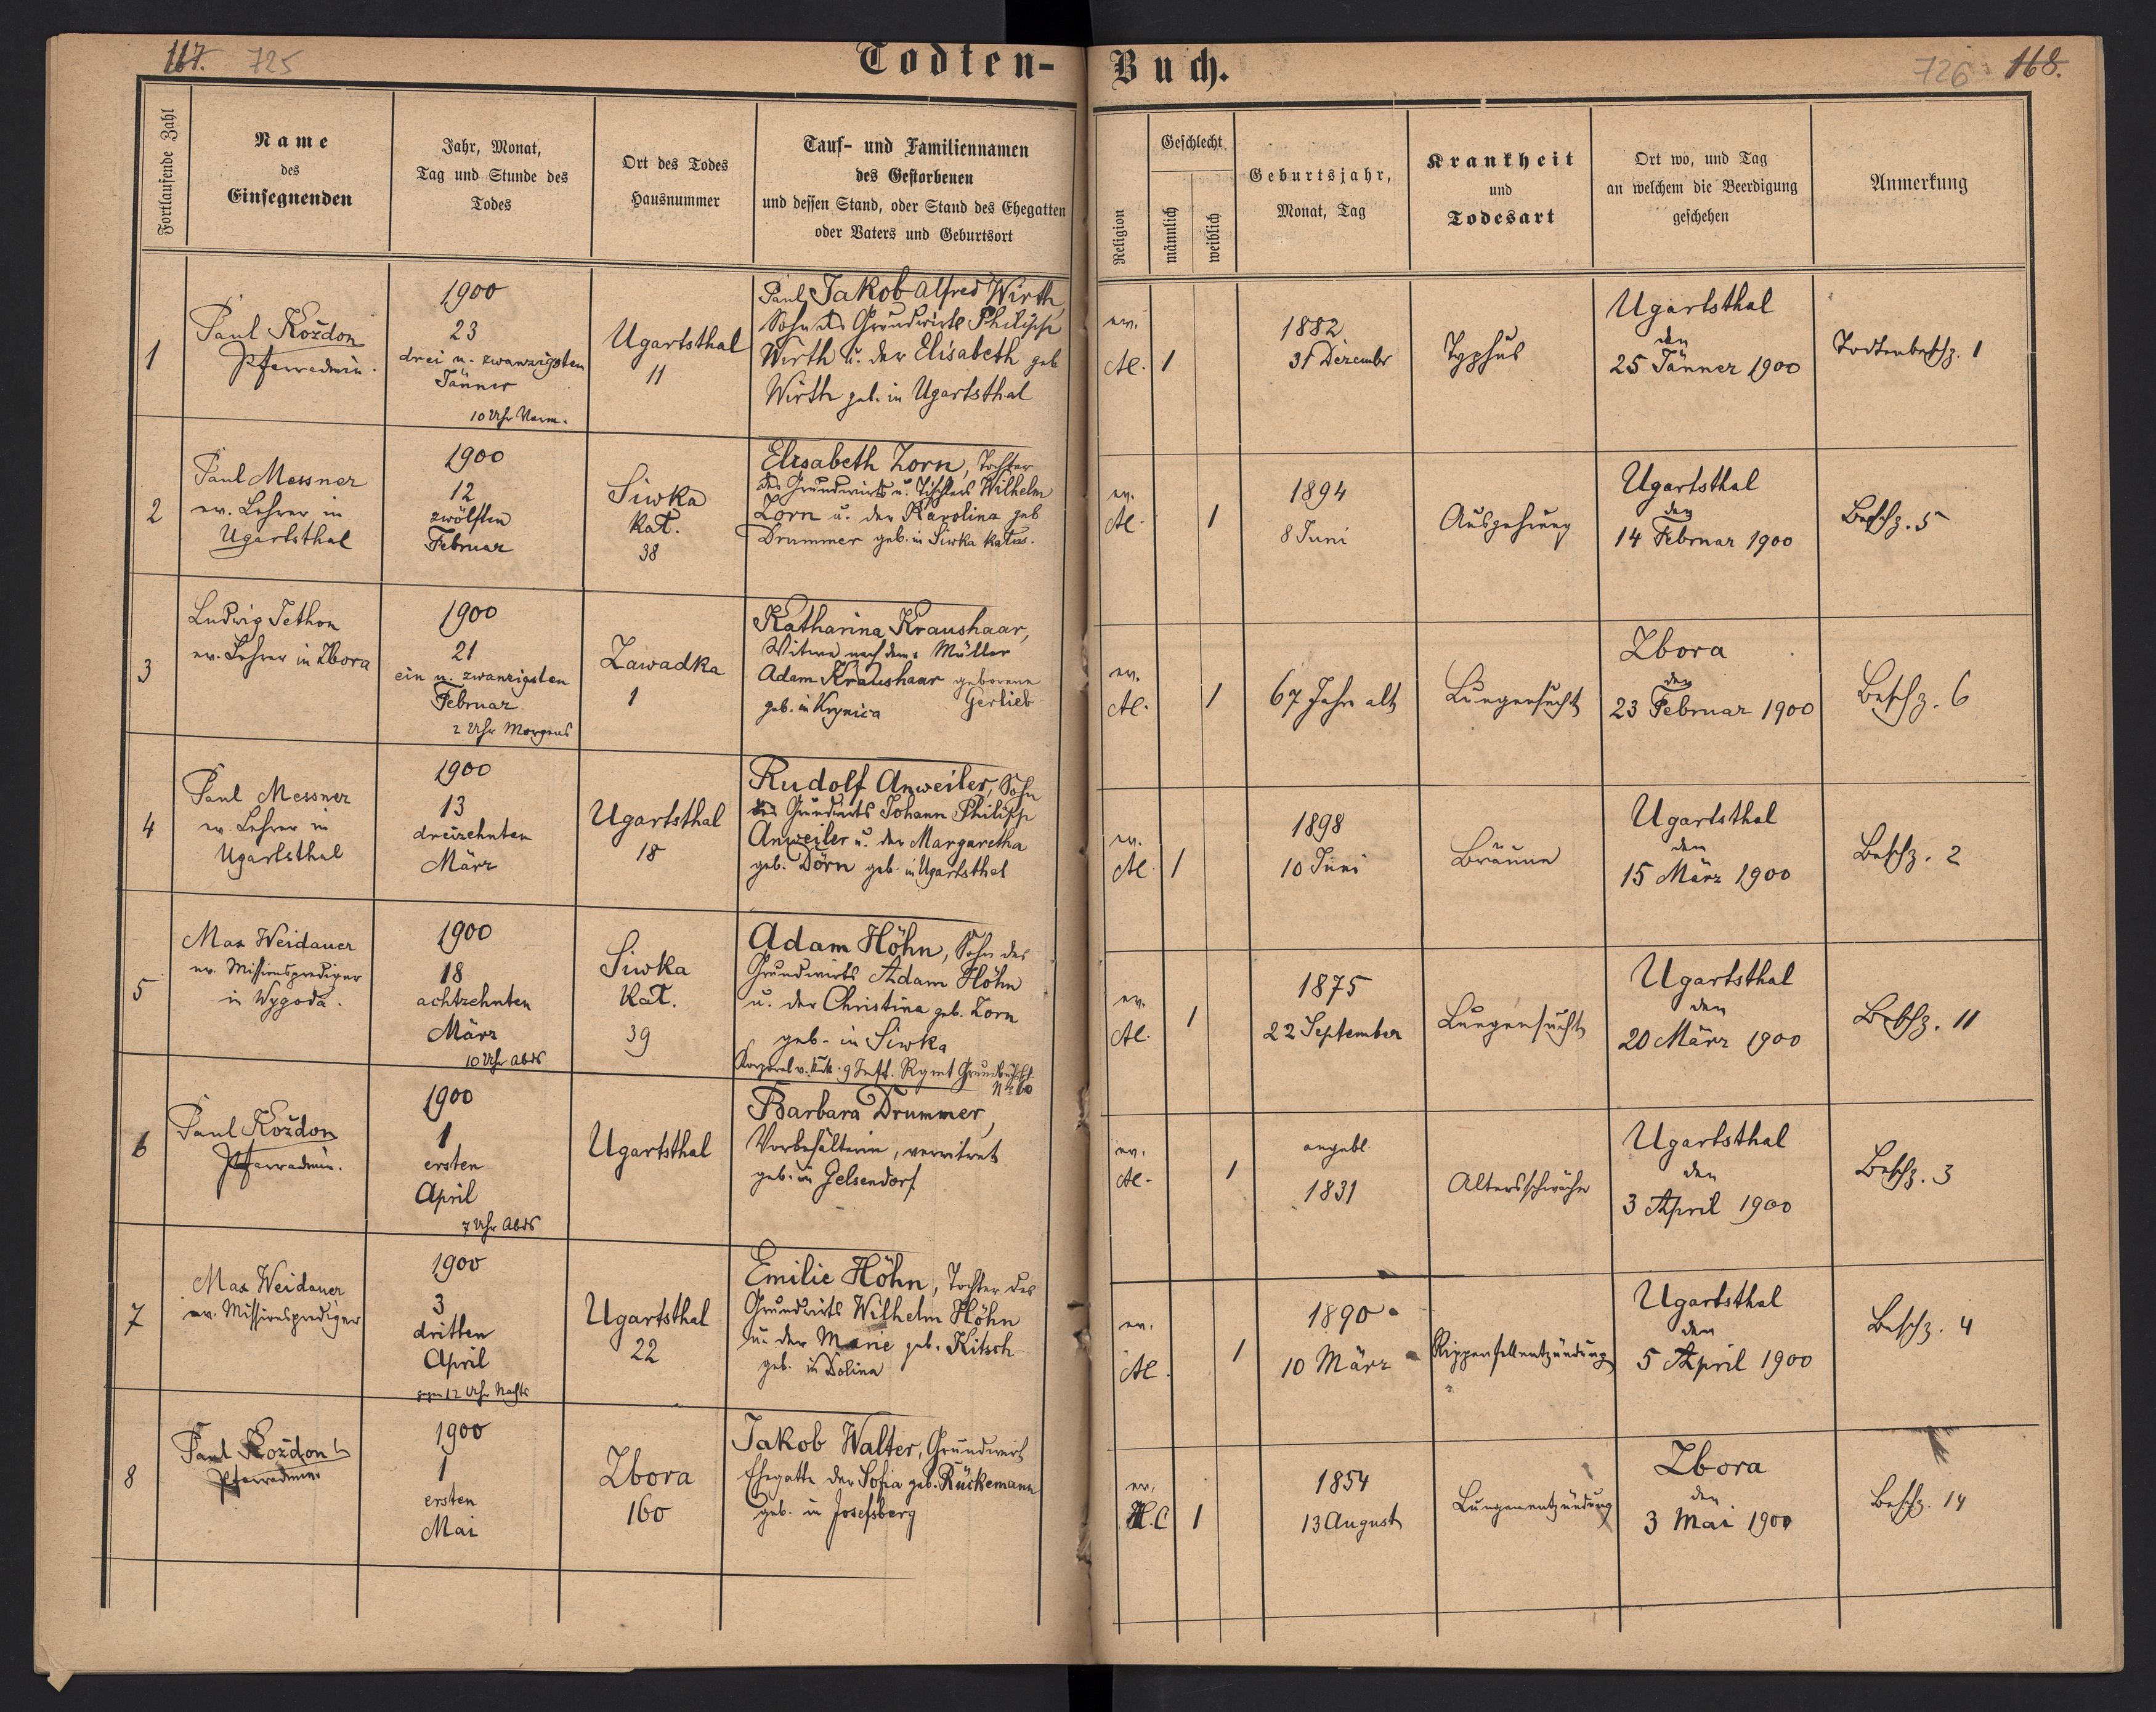 167. 725
Todten-
Fortlaufende Zahl
Name
des
Einsegnenden
Jahr, Monat,
Tag und Stunde des
Todes
Ort des Todes
Hausnummer
Tauf- und Familiennamen
des Gestorbenen
und dessen Stand, oder Stand des Ehegatten
oder Vaters und Geburtsort
1
Paul Kozdon
Pfarradmin.
1900
23
drei u. zwanzigsten
Jänner
10 Uhr Vorm.
Ugartsthal
11
Paul Jakob Alfred Wirth
Sohn des Grundwirts Philipp
Wirth u. der Elisabeth geb
Wirth geb. in Ugartsthal
2
Paul Messner
ev. Lehrer in
Ugartsthal
1900
12
zwölften
Februar
Siwka
Kal.
38
Elisabeth Zorn, Tochter
des Grundwirts u. Tischlers Wilhelm
Zorn u. der Karolina geb
Drummer geb. in Siwka
3
Ludwig Jethon
ev. Lehrer in Zbora
1900
21
ein u. zwanzigsten
Februar
2 Uhr Morgens
Zawadka
1
Katharina Kraushaar,
Witwe nach dem Müller
Adam Kraushaar geborene
Gerlieb
geb. in Krynica
4
Paul Messner
ev Lehrer in
Ugartsthal
1900
13
dreizehnten
März
Ugartsthal
18
Rudolf Anweiler, Sohn
des Grundwirts Johann Philipp
Anweiler u. der Margaretha
geb. Dörn geb. in Ugartsthal
5
Max Weidauer
ev. Missionsprediger
in Wygoda.
1900
18
achtzehnten
März
10 Uhr Abds
Siwka
Kal.
39
Adam Höhn, Sohn des
Grundwirts Adam Höhn
u. der Christina geb. Zorn
geb. in Siwka
Korporal v. 9 Inft. Rgmt
6
Paul Kozdon
Pfarradmin.
1900
1
ersten
April
7 Uhr Abds
Ugartsthal
Barbara Drummer,
Vorbehälterin, verwitwet
geb. in Gelsendorf
7
Max Weidauer
ev. Missionsprediger
1900
3
dritten
April
gegen 12 Uhr Nachts
Ugartsthal
22
Emilie Höhn, Tochter des
Grundwirts Wilhelm Höhn
u. der Marie geb. Kitsch
geb. in Dolina
8
Paul Kozdon
Pfarradmin
1900
1
ersten
Mai
Zbora
160
Jakob Walter, Grundwirt
Ehegatte der Sofia geb. Rückemann
geb. in Josefsberg
Buch.
726 168.
Religion
Geschlecht
männlich
weiblich
Geburtsjahr,
Monat, Tag
Krankheit
und
Todesart
Ort wo, und Tag
an welchem die Beerdigung
geschehen
Anmerkung
ev.
AC. 1
1882
31 Dezember
Typhus
Ugartsthal
den
25 Jänner 1900
Todtenbeschz. 1
ev.
AC. 1
1894
8 Juni
Auszehrung
Ugartsthal
den
14 Februar 1900
Beschz. 5
ev.
AC. 1
67 Jahre alt
Lungensucht
Zbora
den
23 Februar 1900
Beschz. 6
ev.
AC. 1
1898
10 Juni
Bräune
Ugartsthal
den
15 März 1900
Beschz. 2
ev.
AC. 1
1875
22 September
Lungensucht
Ugartsthal
den
20 März 1900
Beschz. 11
ev.
AC. 1
angebl.
1831
Altersschwäche
Ugartsthal
den
3 April 1900
Beschz. 3
ev.
AC. 1
1890
10 März
Rippenfellentzündung
Ugartsthal
den
5 April 1900
Beschz. 4
ev.
H.C 1
1854
13 August
Lungenentzündung
Zbora
den
3 Mai 1900
Beschz. 14